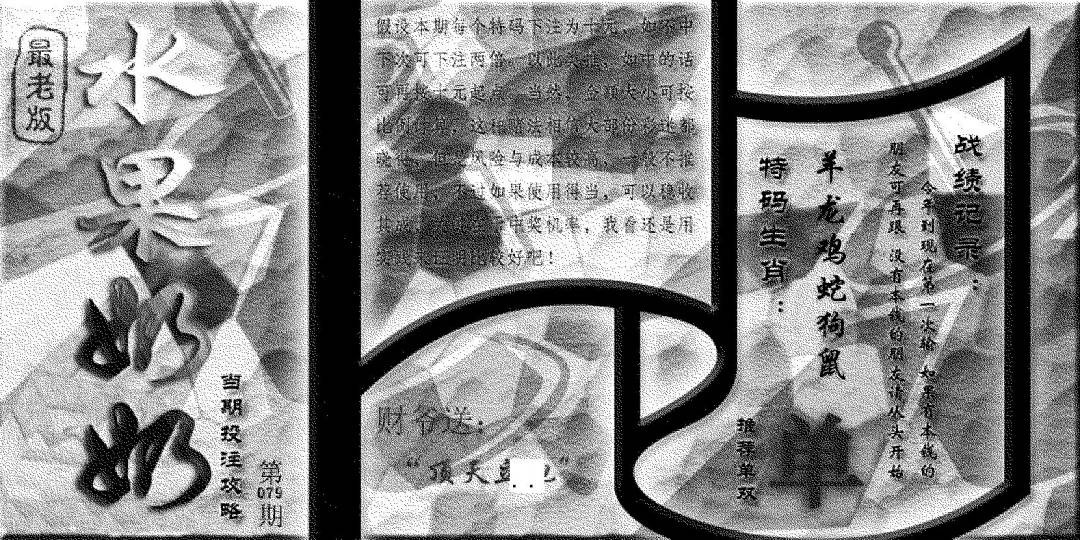 最老版
水果奶奶
当期投注攻略
第079期
假设本期每个特码下注为十元，如不中
下次可下注两倍，以此类推，如中的话
可再按十元起点，当然，金额大小可按
比例计算，这种赌法相信大部份彩迷都
晓得，但是风险与成本较高，一般不推
荐使用，不过如果使用得当，可以稳收
中奖机率，我看还是用
比较好吧！
财爷送：
“顶天
战绩记录：
今年到现在第一次输 如果有本钱的
朋友可再跟 没有本钱的朋友请从头开始
羊龙鸡蛇狗鼠
特码生肖：
推荐单双
单